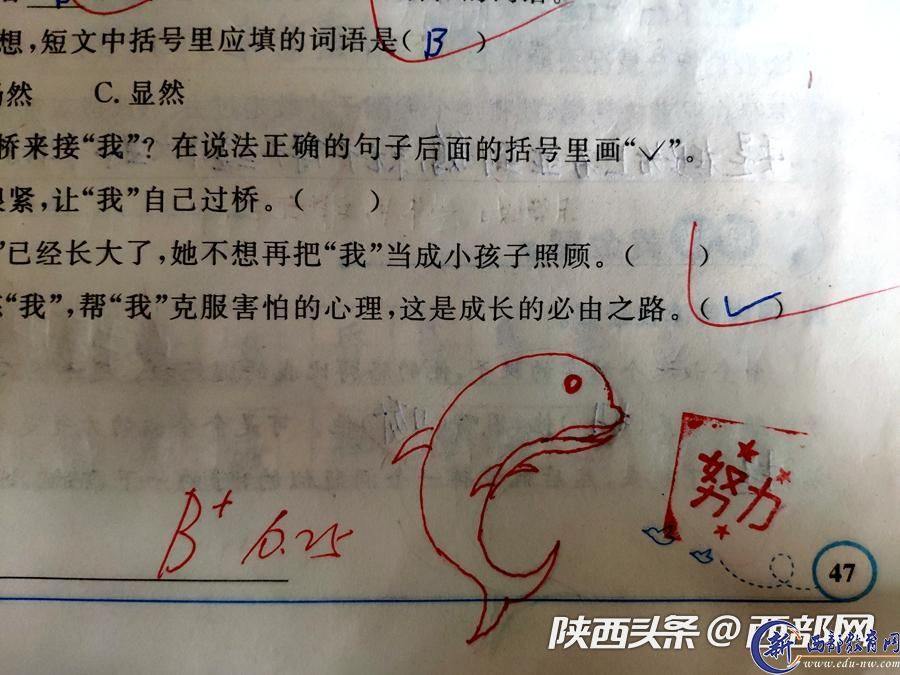 想，短文中括号里应填的词语是（ B ）
然 C. 显然
桥来接“我”？在说法正确的句子后面的括号里画“✓”。
紧，让“我”自己过桥。（ ）
已经长大了，她不想再把“我”当成小孩子照顾。（ ）
“我”，帮“我”克服害怕的心理，这是成长的必由之路。（ ✓ ）
努力
B+ 10.25
47
陕西头条 @西部网
新 西部教育网
www.edu-nw.com